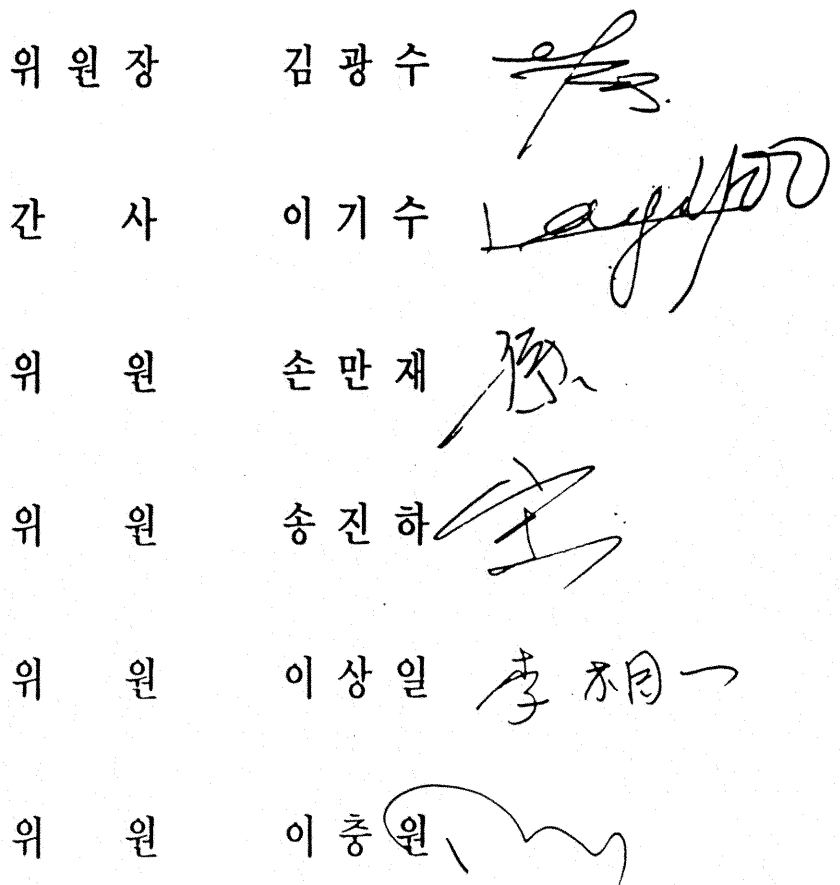 위 원 장 김 광 수
간 사 이 기 수
위 원 손 만 재
위 원 송 진 하
위 원 이 상 일 李 相 一
위 원 이 충 원